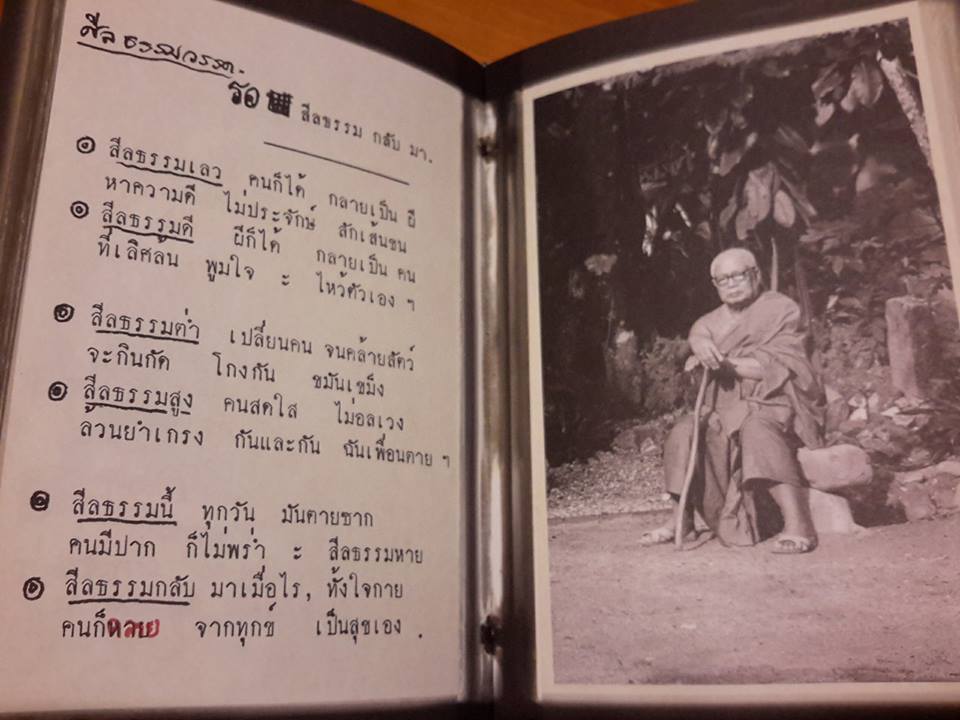 ศีลธรรมวรรค.
รอ ศีลธรรม กลับ มา.
๑ ศีลธรรมเลว คนก็ได้ กลายเป็น ผี
หาความดี ไม่ประจักษ์ สักเส้นขน
๒ ศีลธรรมดี ผีก็ได้ กลายเป็น คน
ที่เลิศล้น ภูมใจ ะ ไหว้ตัวเอง ฯ
๓ ศีลธรรมต่ำ เปลี่ยนคน จนคล้ายสัตว์
จะกินกัด โกงกัน ขมันเขม็ง
๔ ศีลธรรมสูง คนสดใส ไม่อลเวง
ล้วนยำเกรง กันและกัน ฉันเพื่อนตาย ฯ
๑ ศีลธรรมนี้ ทุกวัน มันตายซาก
คนมีปาก ก็ไม่พร่ำ ะ ศีลธรรมหาย
๖ ศีลธรรมกลับ มาเมื่อไร, ทั้งใจกาย
คนก็ จากทุกข์ เป็นสุขเอง .